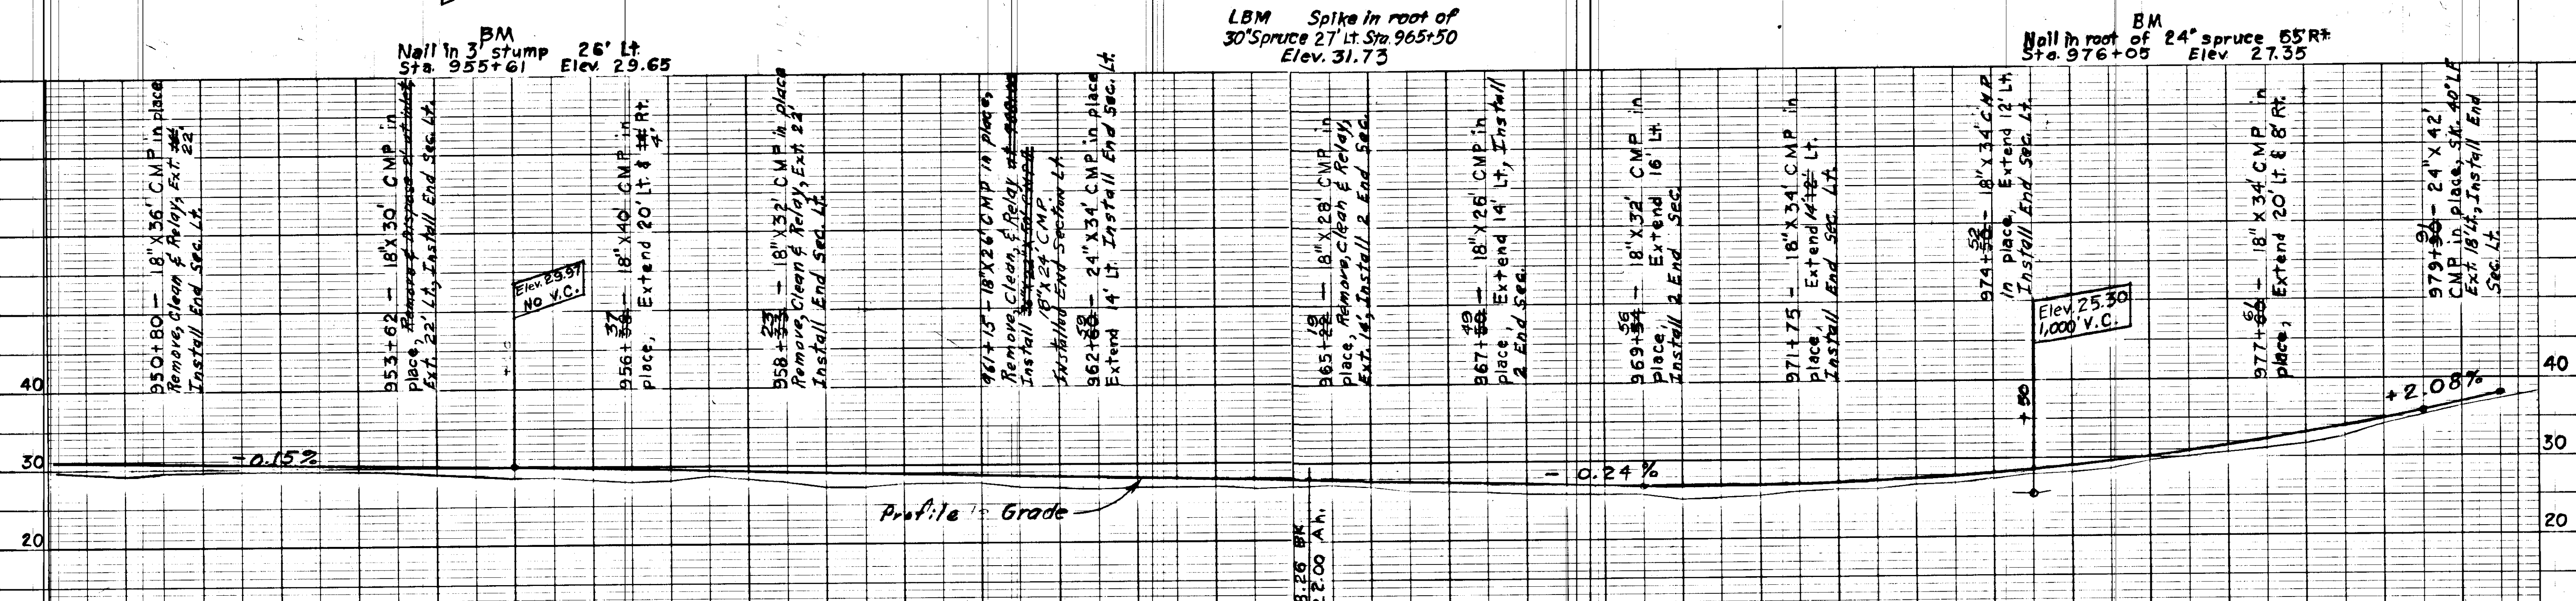 BM
Nail in 3' stump 26' Lt.
Sta. 955+61 Elev. 29.65
LBM Spike in root of
30" Spruce 27' Lt. Sta. 965+50
Elev. 31.73
BM
Nail in root of 24" spruce 55' Rt.
Sta. 976+05 Elev. 27.35
950+80 - 18"X36' CMP in place
Remove, Clean & Relay, Ext.
22'
Install End Sec. Lt.
953+62 - 18"X30' CMP in
place, Remove & Dispose 2' at inlet,
Ext. 22' Lt., Install End Sec. Lt.
Elev. 29.97
NO V.C.
37
956+38 - 18"X40' CMP in
place, Extend 20' Lt. & Rt.
4'
23
958+33 - 18"X32' CMP in place
Remove, Clean & Relay, Ext. 22'
Install End Sec. Lt.
961+15 - 18"X26' CMP in place,
Remove, Clean, & Relay
Install
18"X24' CMP
Installed End Section Lt.
59
962+60 - 24"X34' CMP in place
Extend 14' Lt. Install End Sec. Lt.
19
965+22 - 18"X28' CMP in
place, Remove, Clean & Relay,
Ext. 14', Install 2 End Sec.
49
967+50 - 18"X26' CMP in
place, Extend 14' Lt., Install
2 End Sec.
56
969+54 - 18"X32' CMP in
place, Extend 16' Lt.
Install 2 End Sec.
971+75 - 18"X34' CMP in
place, Extend 14' 12' Lt.
Install End Sec. Lt.
52
974+50 - 18"X34' CMP
In place, Extend 12' Lt.
Install End Sec. Lt.
Elev. 25.30
1,000' V.C.
+50
61
977+60 - 18"X34' CMP in
place, Extend 20' Lt. & 8' Rt.
91
979+90 - 24"X42'
CMP in place, sk. 40° LF
Ext. 18' Lt., Install End
Sec. Lt.
40
40
+2.08%
30
-0.15%
-0.24%
30
Profile Grade
20
20
8.26 BK
22.00 Ah.